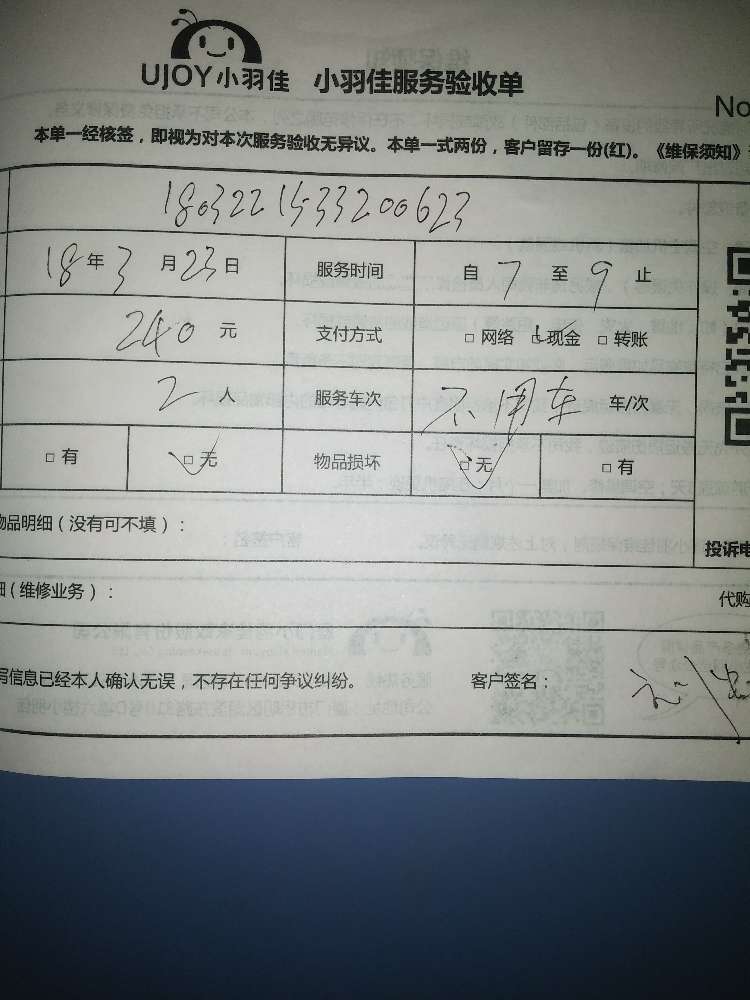 UJOY小羽佳 小羽佳服务验收单
No
本单一经核签，即视为对本次服务验收无异议。本单一式两份，客户留存一份(红)。《维保须知》
1803221533200623
18年3月23日 服务时间 自7至9止
240元 支付方式 □网络 □现金 □转账
2人 服务车次 不用车 车/次
□有 □无 物品损坏 □无 □有
物品明细（没有可不填）：
投诉电
（维修业务）：
代购
写信息已经本人确认无误，不存在任何争议纠纷。 客户签名：